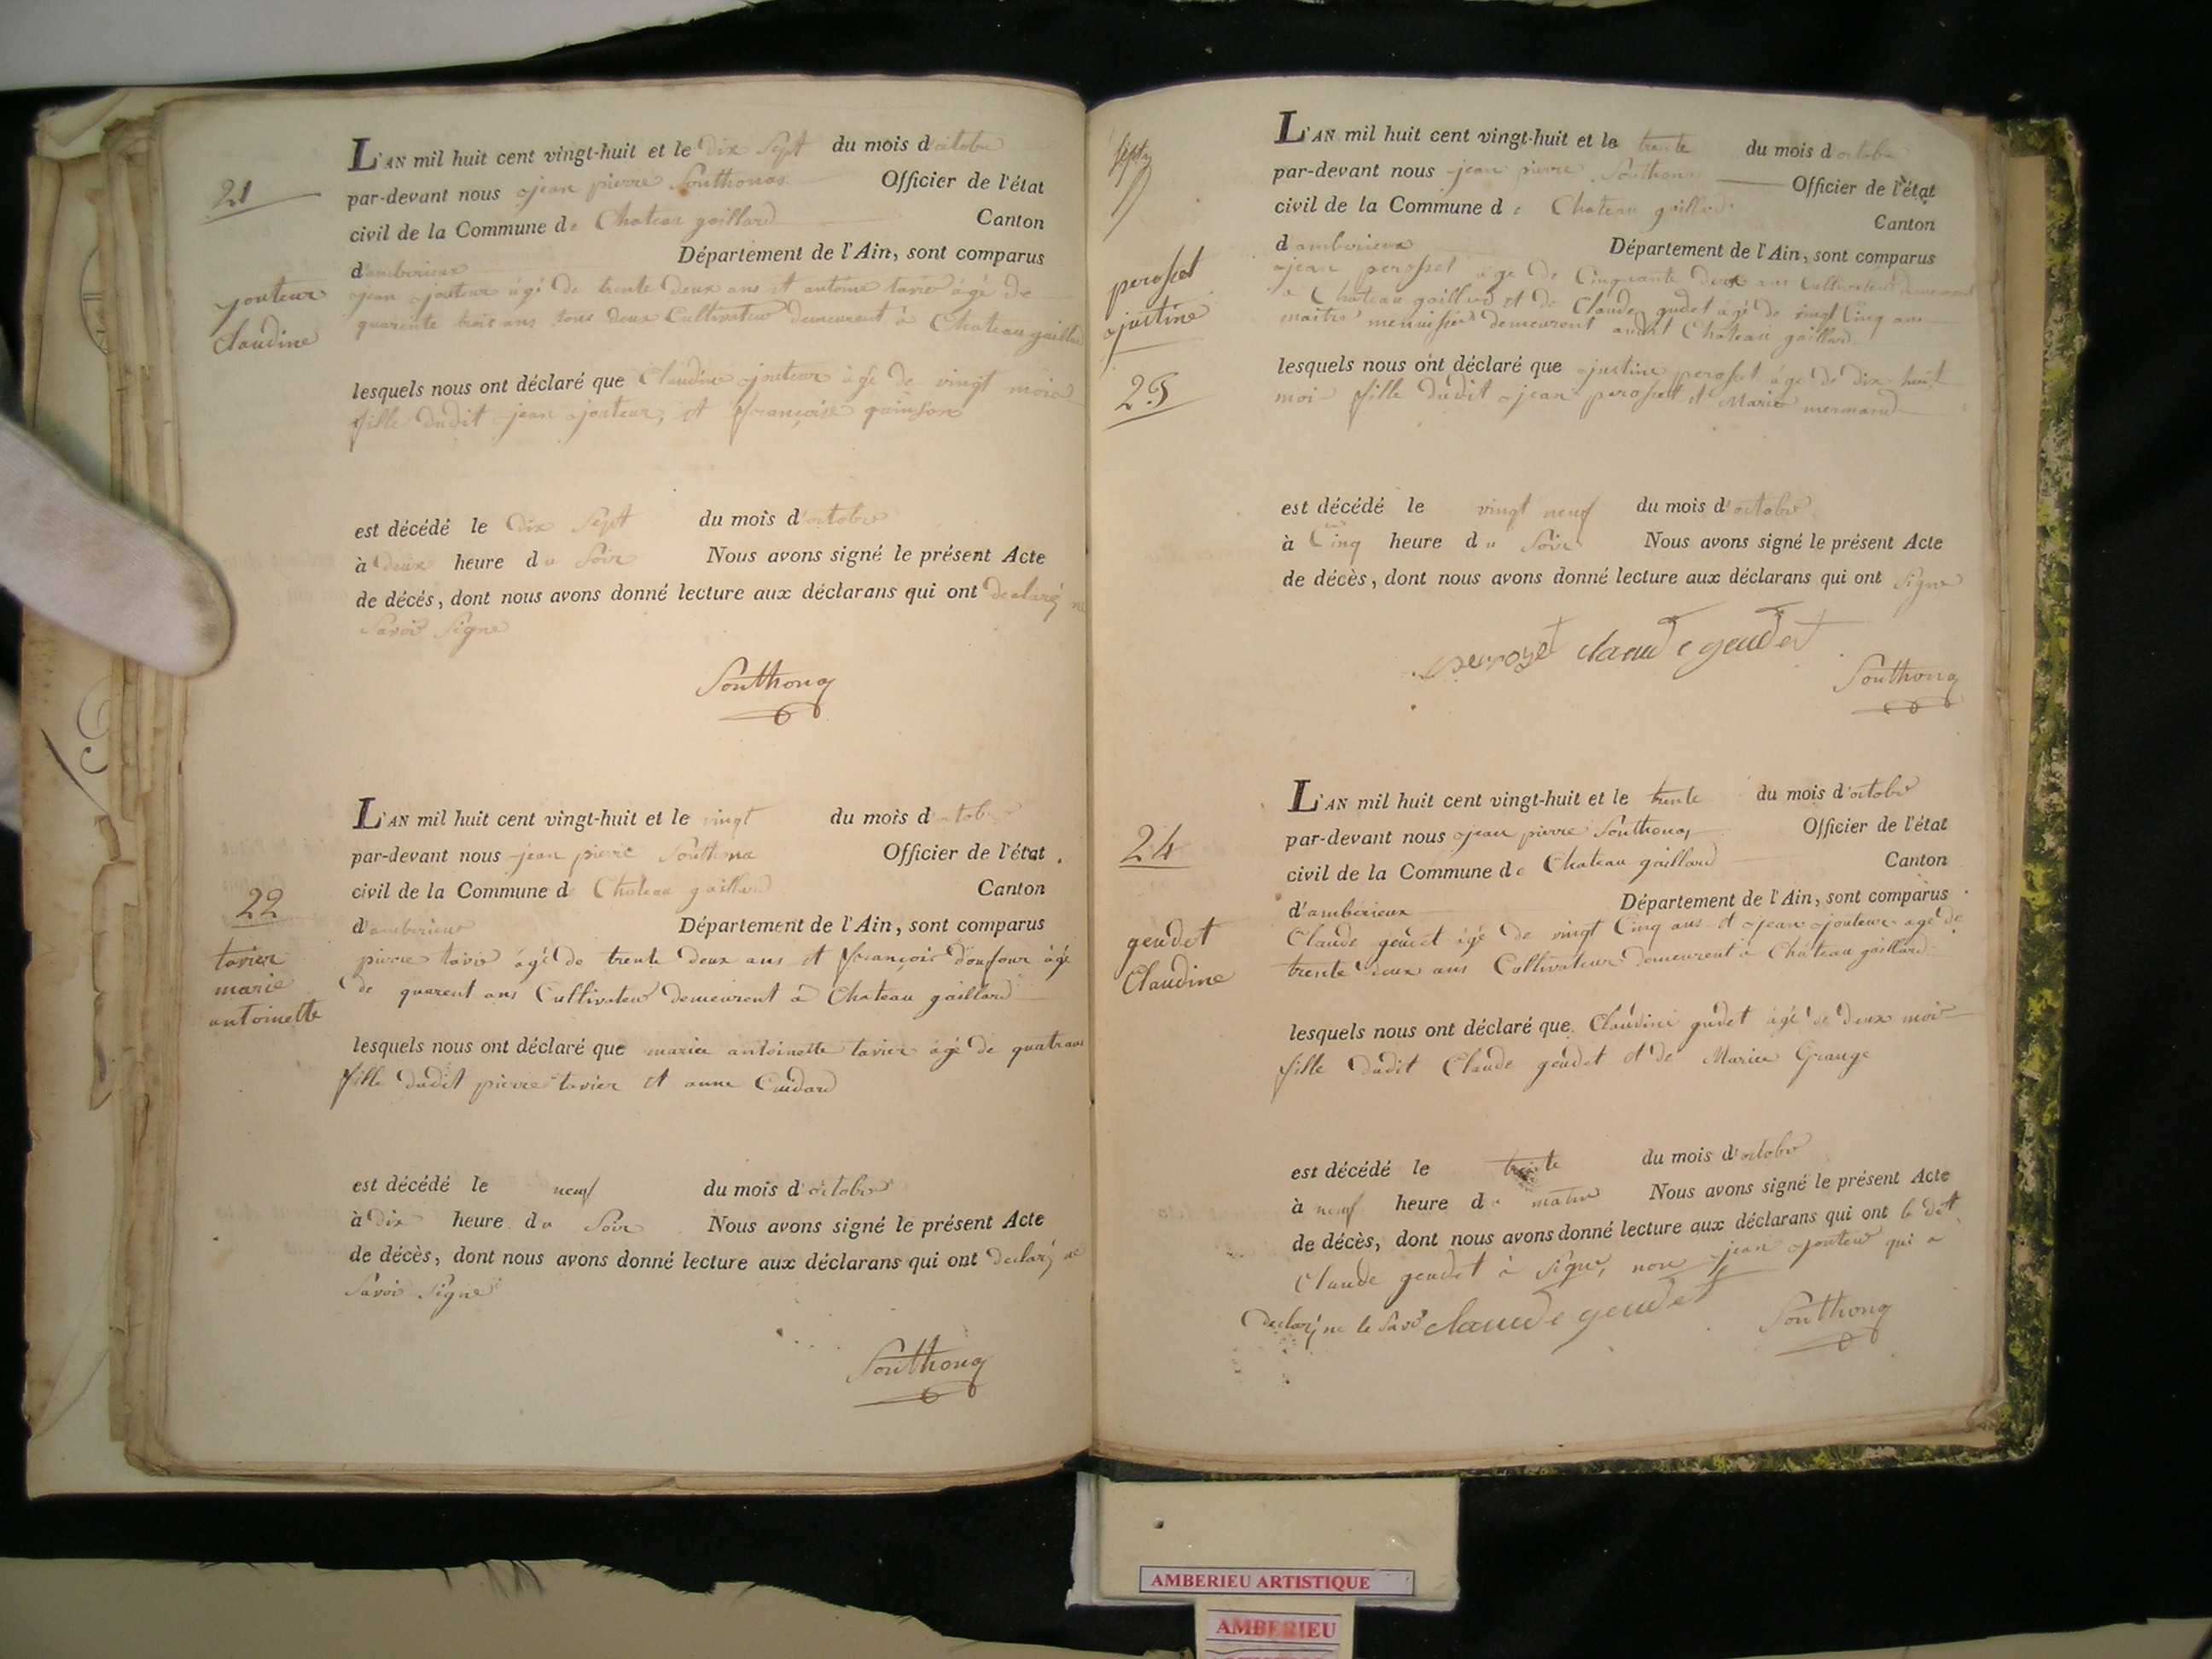 21
jouteur
Claudine
L'AN mil huit cent vingt-huit et le dix Sept du mois d'octobre
par-devant nous jean pierre Southonax Officier de l'état
civil de la Commune de Chateau gaillard Canton
d'amberieux Département de l'Ain, sont comparus
jean jouteur agé de trente deux ans et antoine tavier agé de
quarente trois ans tous deux Cultivateur demeurent à Chateau gaillard
lesquels nous ont déclaré que Claudine jouteur agé de vingt mois
fille dudit jean jouteur, et françoise
est décédé le dix Sept du mois d'octobre
à deux heure du Soir Nous avons signé le présent Acte
de décés, dont nous avons donné lecture aux déclarans qui ont declaré ne
Savoir Signé
Southonax
22
tavier
marie
antoinette
L'AN mil huit cent vingt-huit et le vingt du mois d'octobre
par-devant nous jean pierre Southonax Officier de l'état
civil de la Commune de Chateau gaillard Canton
d'amberieux Département de l'Ain, sont comparus
pierre tavier agé de trente deux ans et françois doufour agé
de quarent ans Cultivateur demeurent à Chateau gaillard
lesquels nous ont déclaré que mariee antoinette tavier agé de quatre ans
fille dudit pierre tavier et anne Cuidard
est décédé le neuf du mois d'octobre
à dix heure du Soir Nous avons signé le présent Acte
de décès, dont nous avons donné lecture aux déclarans qui ont declaré ne
Savoir Signé
Southonax
perosset
justine
23
L'AN mil huit cent vingt-huit et le trente du mois d'octobre
par-devant nous jean pierre Southonax Officier de l'état
civil de la Commune de Chateau gaillard Canton
d'amberieux Département de l'Ain, sont comparus
jean perosset agé de Cinquante deux ans Cultivateur demeurent
à Chateau gaillard et de Claude gudet agé de vingt Cinq ans
maitre menuisier demeurent audit Chateau gaillard
lesquels nous ont déclaré que justine perosset agé de dix huit
moi fille dudit jean perosset et Marie mermand
est décédé le vingt neuf du mois d'octobre
à Cinq heure du Soir Nous avons signé le présent Acte
de décès, dont nous avons donné lecture aux déclarans qui ont Signé
perroset claude geudet
Southonax
24
geudet
Claudine
L'AN mil huit cent vingt-huit et le trente du mois d'octobre
par-devant nous jean pierre Southonax Officier de l'état
civil de la Commune de Chateau gaillard Canton
d'amberieux Département de l'Ain, sont comparus
Claude geudet agé de vingt Cinq ans et jean jouteur agé de
trente deux ans Cultivateur demeurent à Chateau gaillard
lesquels nous ont déclaré que Claudine gudet agé de deux moi
fille dudit Claude geudet et de Mariee Grange
est décédé le trente du mois d'octobre
à neuf heure du matin Nous avons signé le présent Acte
de décès, dont nous avons donné lecture aux déclarans qui ont le dit
Claude geudet à Signé, non jean jouteur qui a
declaré ne le Savoir claude geudet
Southonax
AMBERIEU ARTISTIQUE
AMBERIEU